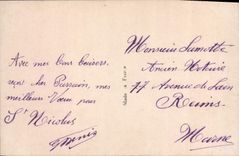 Avec mes bons baisers,
reçoit cher Parrain, mes
meilleurs Vœux pour
St Nicolas
Monsieur Lamotte
Ancien Notaire
77 Avenue de Laon
Reims
Marne